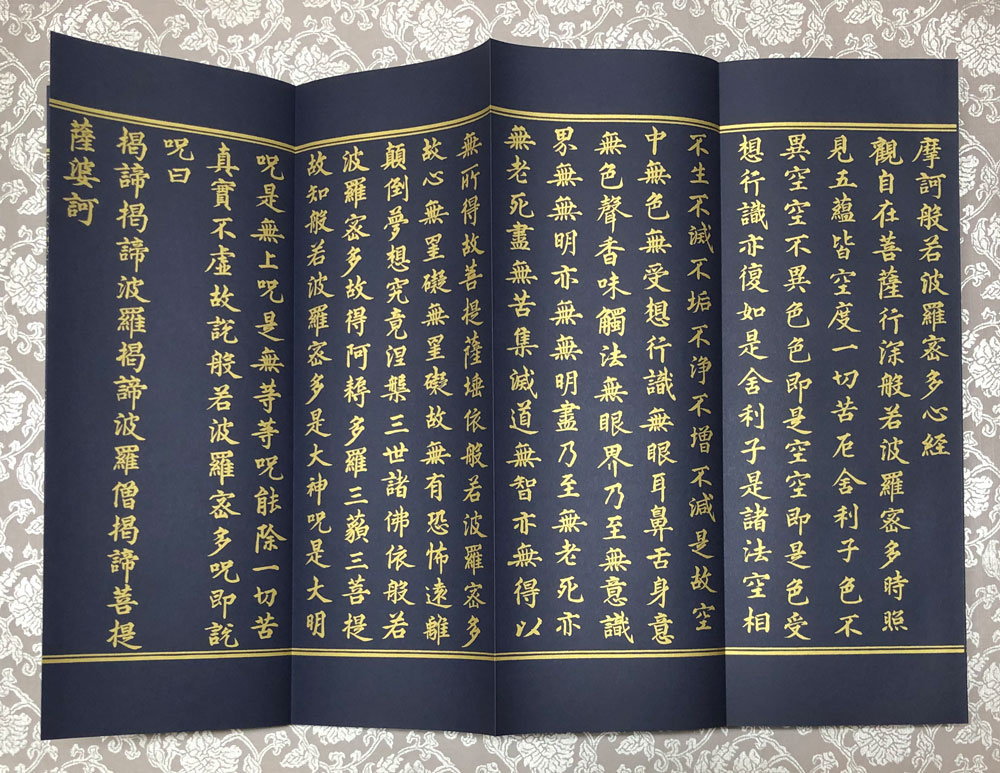 摩訶般若波羅密多心經
觀自在菩薩行深般若波羅密多時照
見五蘊皆空度一切苦厄舍利子色不
異空空不異色色即是空空即是色受
想行識亦復如是舍利子是諸法空相
不生不滅不垢不浄不增不減是故空
中無色無受想行識無眼耳鼻舌身意
無色聲香味觸法無眼界乃至無意識
界無無明亦無無明盡乃至無老死亦
無老死盡無苦集滅道無智亦無得以
無所得故菩提薩埵依般若波羅密多
故心無罣礙無罣礙故無有恐怖遠離
顛倒夢想究竟涅槃三世諸佛依般若
波羅密多故得阿耨多羅三藐三菩提
故知般若波羅密多是大神呪是大明
呪是無上呪是無等等呪能除一切苦
真實不虛故説般若波羅密多呪即説
呪曰
揭諦揭諦波羅揭諦波羅僧揭諦菩提
薩婆訶